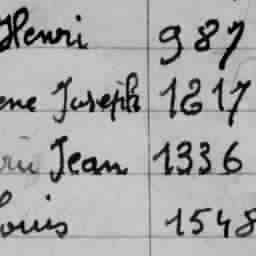 Henri 987
ene Joseph 1217
rie Jean 1336
ouis 1548